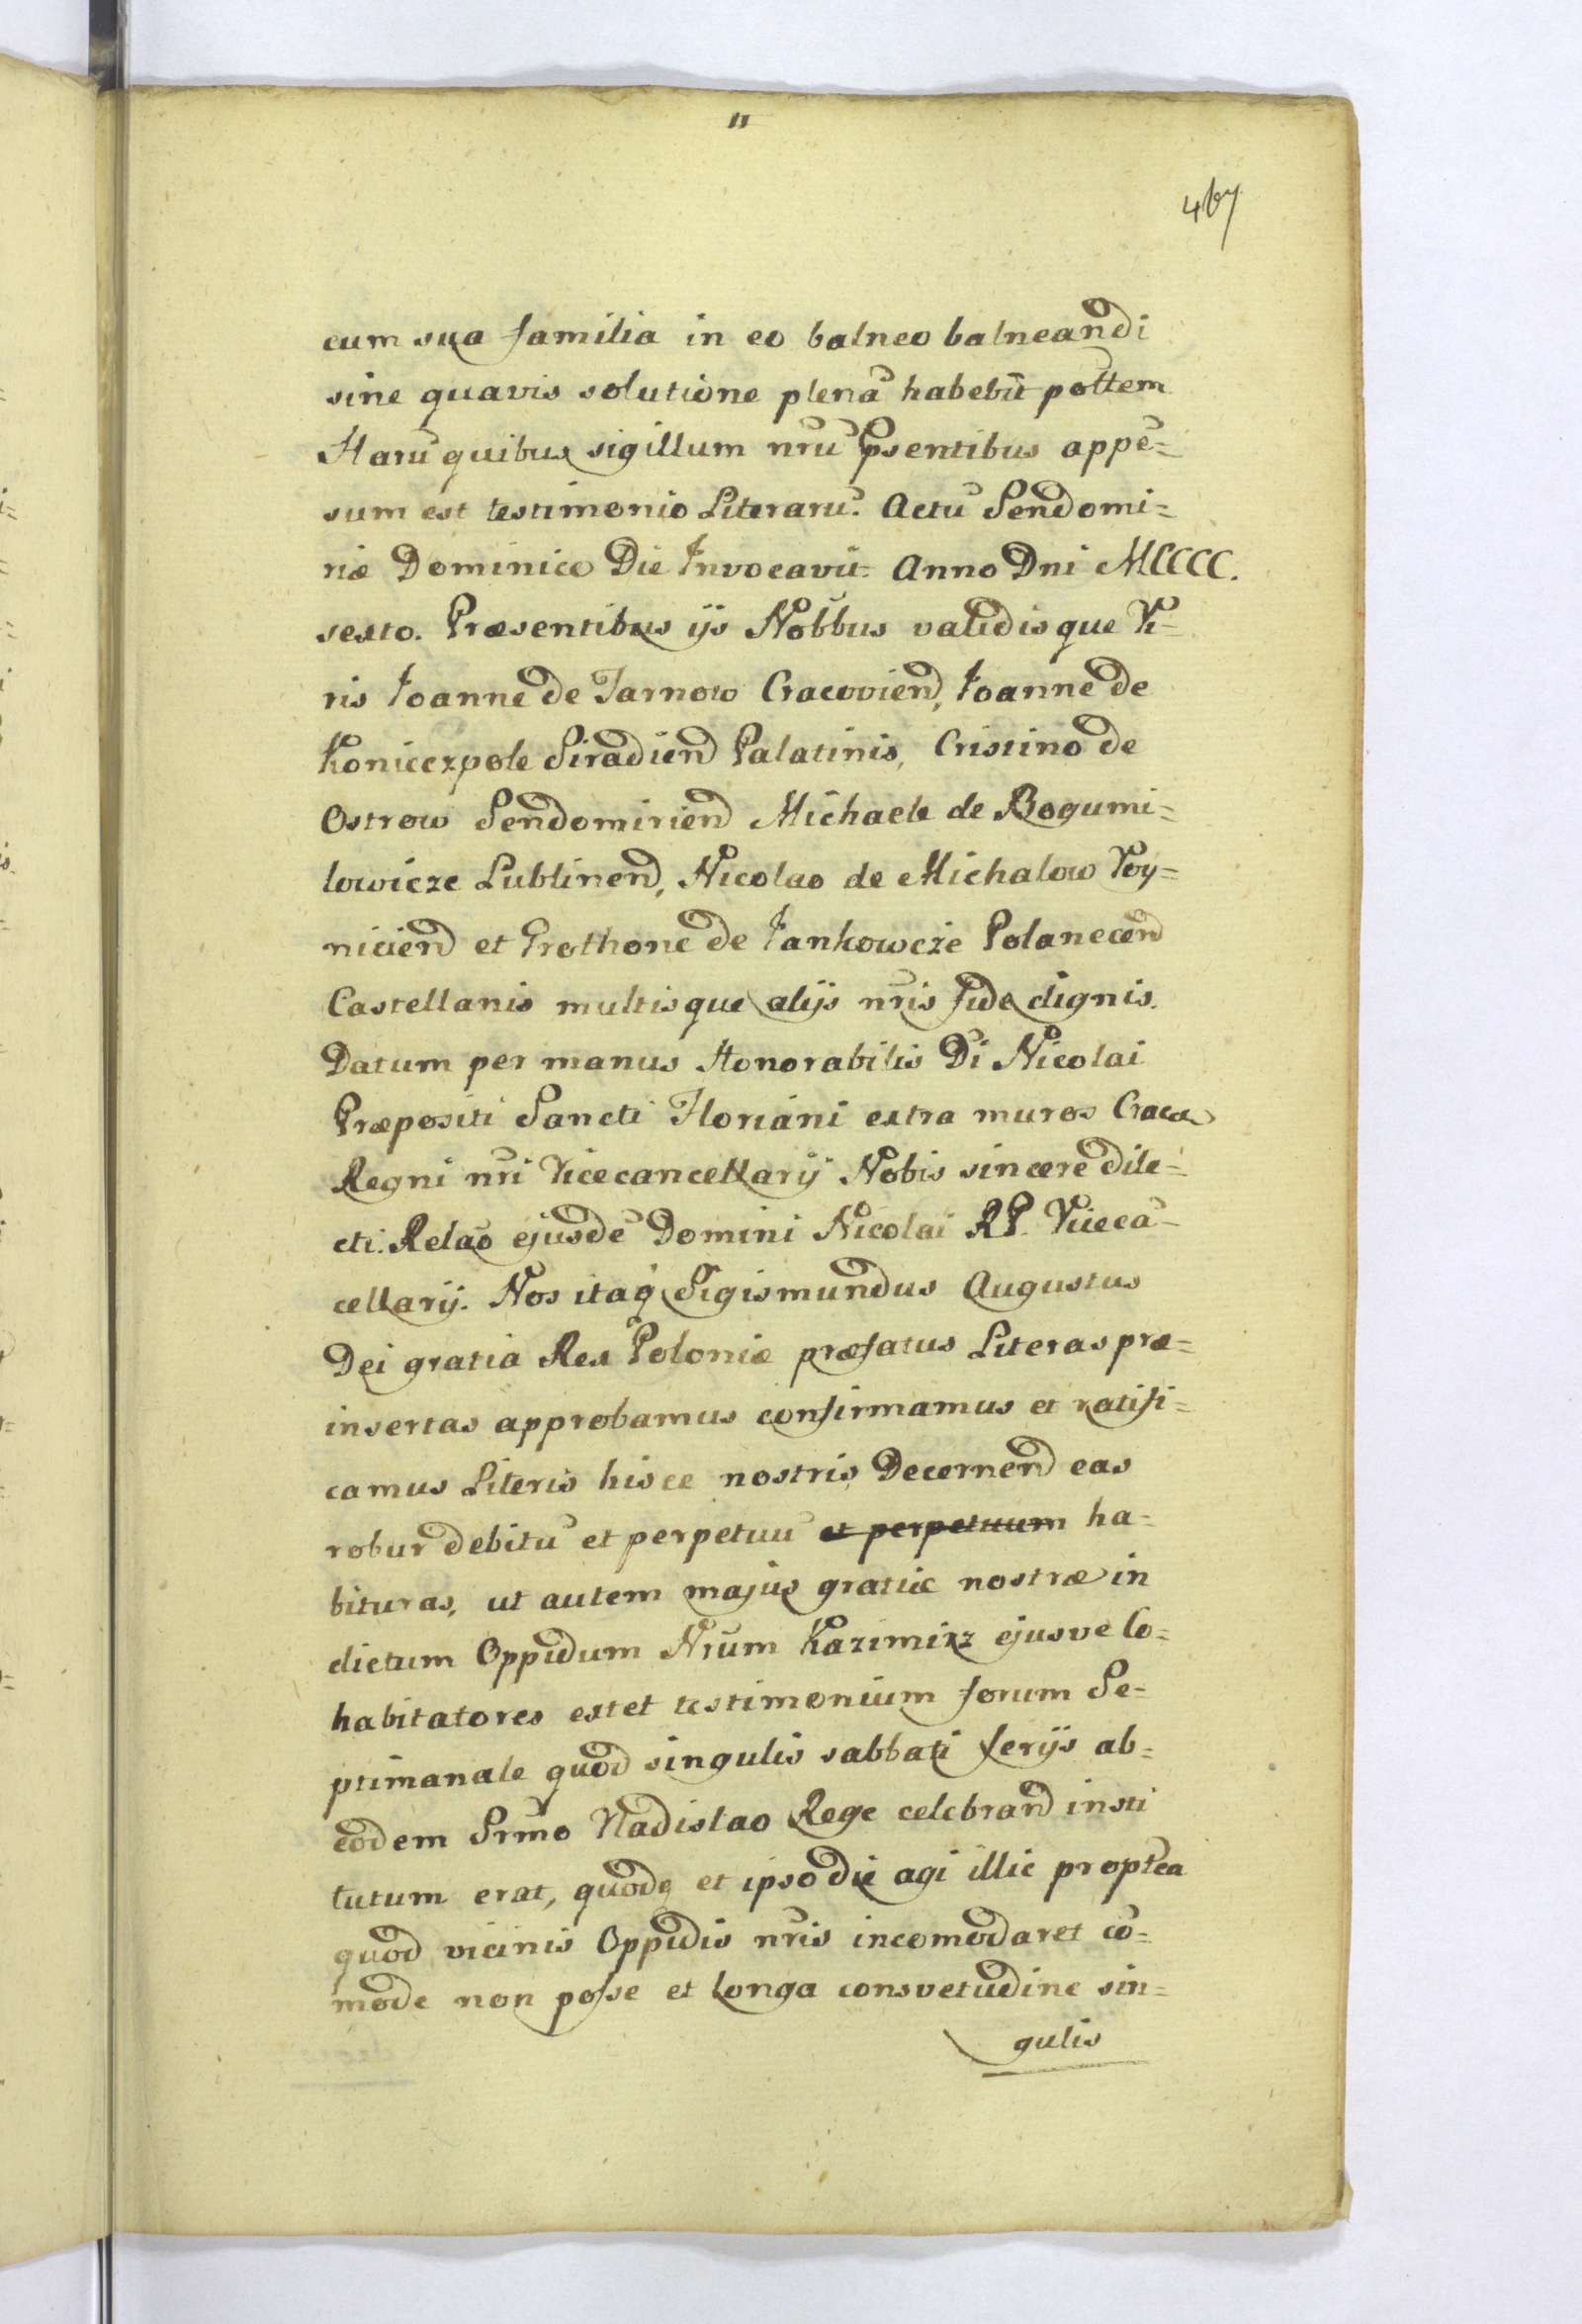 11
467
cum sua familia in eo balneo balneandi
sine quavis solutione plenã habebit pottem
Harũ quibus sigillum nrũ psentibus appẽ=
sum est testimonio Literarũ. Actũ Sendomi=
riæ Dominico Die Invocavit Anno Dni MCCCC.
sexto. Præsentibus ijs Nobbus validisque Vi=
ris Joanne de Tarnow Cracovien, Joanne de
Konieczpole Siradien Palatinis, Cristino de
Ostrow Sendomirien Michaele de Bogumi=
lowicze Lublinen, Nicolao de Michalow Voy=
nicien et Prothone de Jankowcze Polanecen
Castellanis multisque alijs nris fide dignis.
Datum per manus Honorabilis Di Nicolai
Præpositi Sancti Floriani extra muros Craca
Regni nri Vicecancellarij Nobis sincere dile=
cti. Relaõ ejusdẽ Domini Nicolai RP. Vicecã=
cellarij. Nos itaq Sigismundus Augustus
Dei gratia Rex Poloniæ præfatus Literas præ=
insertas approbamus confirmamus et ratifi=
camus Literis hisce nostris Decernen eas
robur debitũ et perpetuũ et perpetuum ha=
bituras, ut autem majus gratiæ nostræ in
dictum Oppidum Nrum Kazimirz ejusve Co=
habitatores extet testimonium forum Se=
ptimanale quod singulis sabbati ferijs ab=
eodem Srmo Vladislao Rege celebrand insti
tutum erat, quodq et ipso die agi illic proptea
quod vicinis Oppidis nris incomodaret cõ=
mode non posse et longa consvetudine sin=
gulis